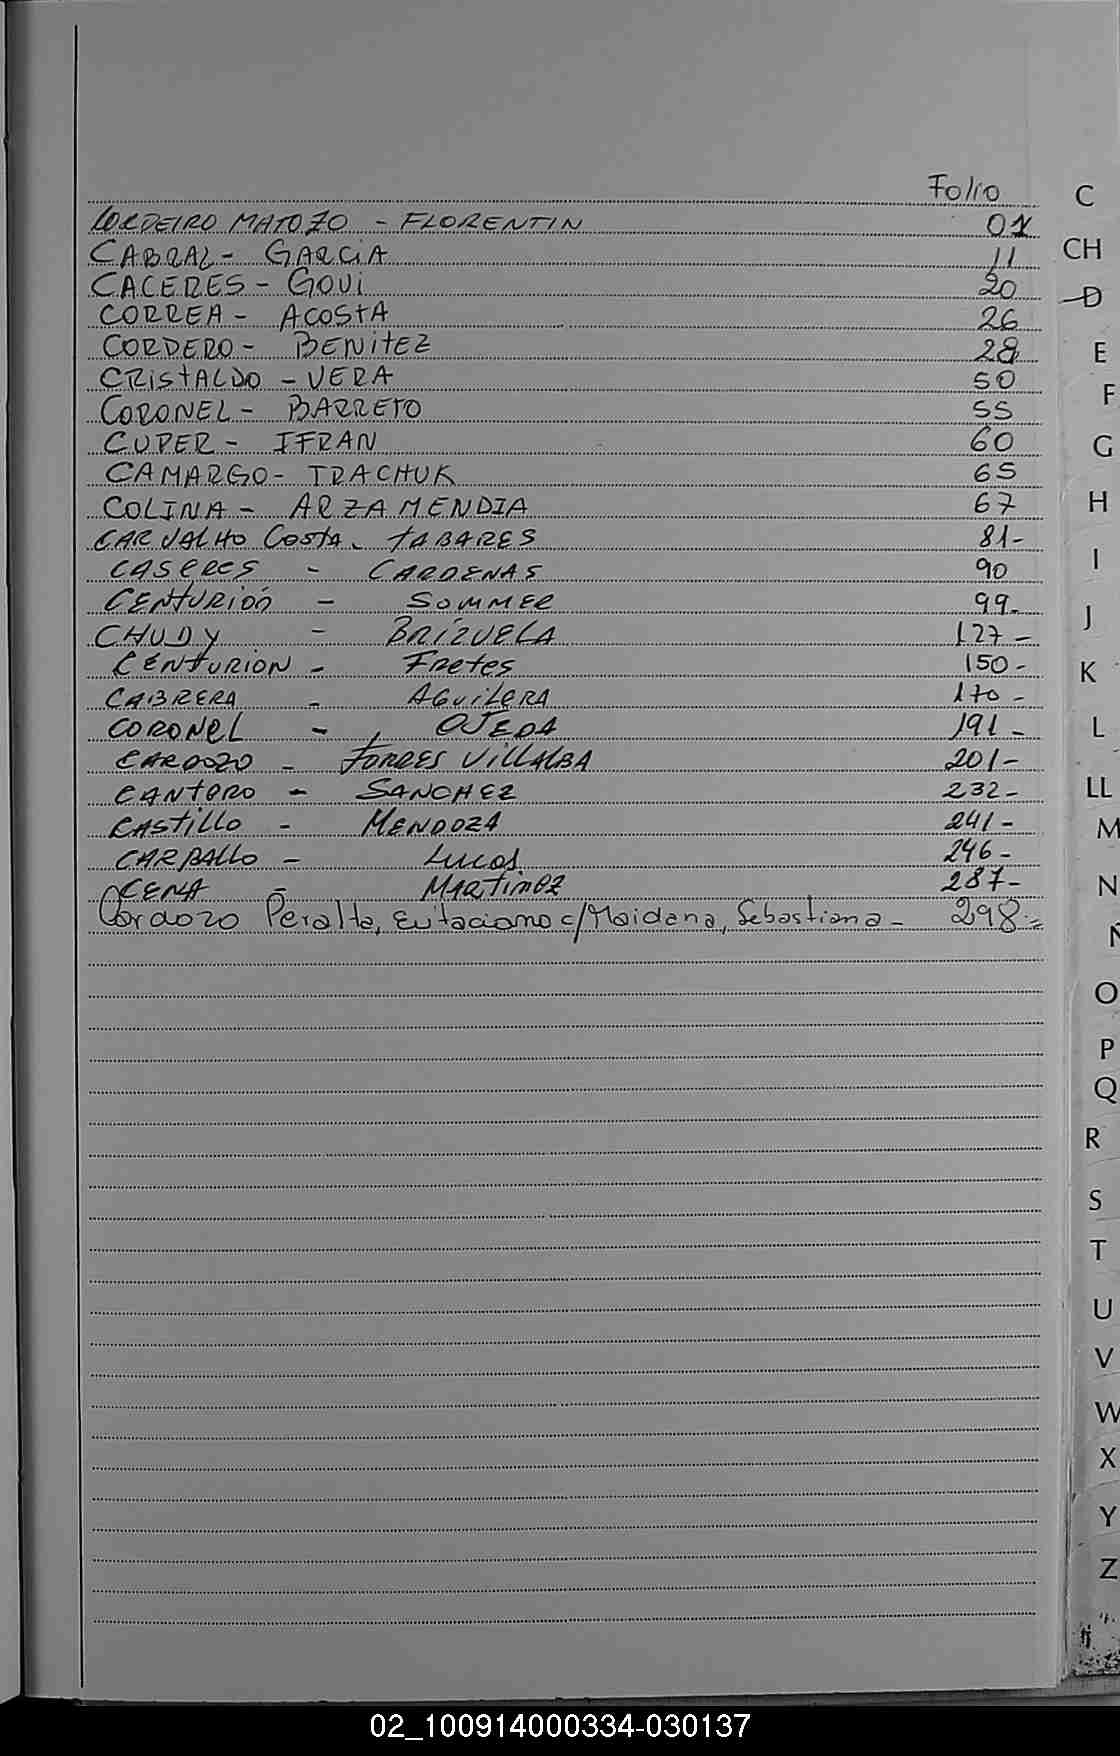 Folio
CORDEIRO MATOZO - FLORENTIN 01
CABRAL - GARCIA 11
CACERES - GOUI 20
CORREA - ACOSTA 26
CORDERO - BENITEZ 28
CRISTALDO - VERA 50
CORONEL - BARRETO 55
CUPER - IFRAN 60
CAMARGO - TRACHUK 65
COLINA - ARZAMENDIA 67
CARVALHO Costa - TABARES 81-
CASERES - CARDENAS 90
CENTURIÓN - SOMMER 99-
CHUDY - BRIZUELA 127-
CENTURION - Fretes 150-
CABRERA - AGUILERA 170-
CORONEL - OJEDA 191-
CARDOZO - TORRES VILLALBA 201-
CANTERO - SANCHEZ 232-
CASTILLO - MENDOZA 241-
CARBALLO - Lucas 246-
CENA - MARTINEZ 287-
Cardozo Peralta, Eutaciano c/Maidana, Sebastiana - 298=
C
CH
D
E
F
G
H
I
J
K
L
LL
M
N
Ñ
O
P
Q
R
S
T
U
V
W
X
Y
Z
02_100914000334-030137